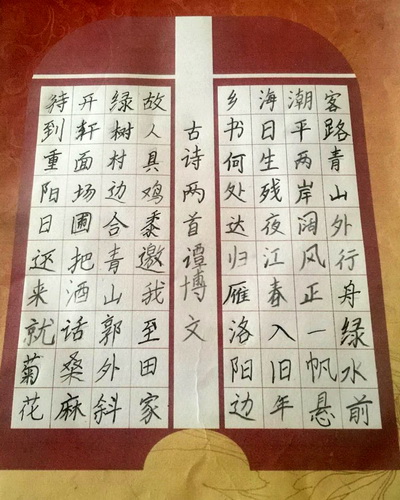 客路青山外行舟绿水前
潮平两岸阔风正一帆悬
海日生残夜江春入旧年
乡书何处达归雁洛阳边
古诗两首谭博文
故人具鸡黍邀我至田家
绿树村边合青山郭外斜
开轩面场圃把酒话桑麻
待到重阳日还来就菊花